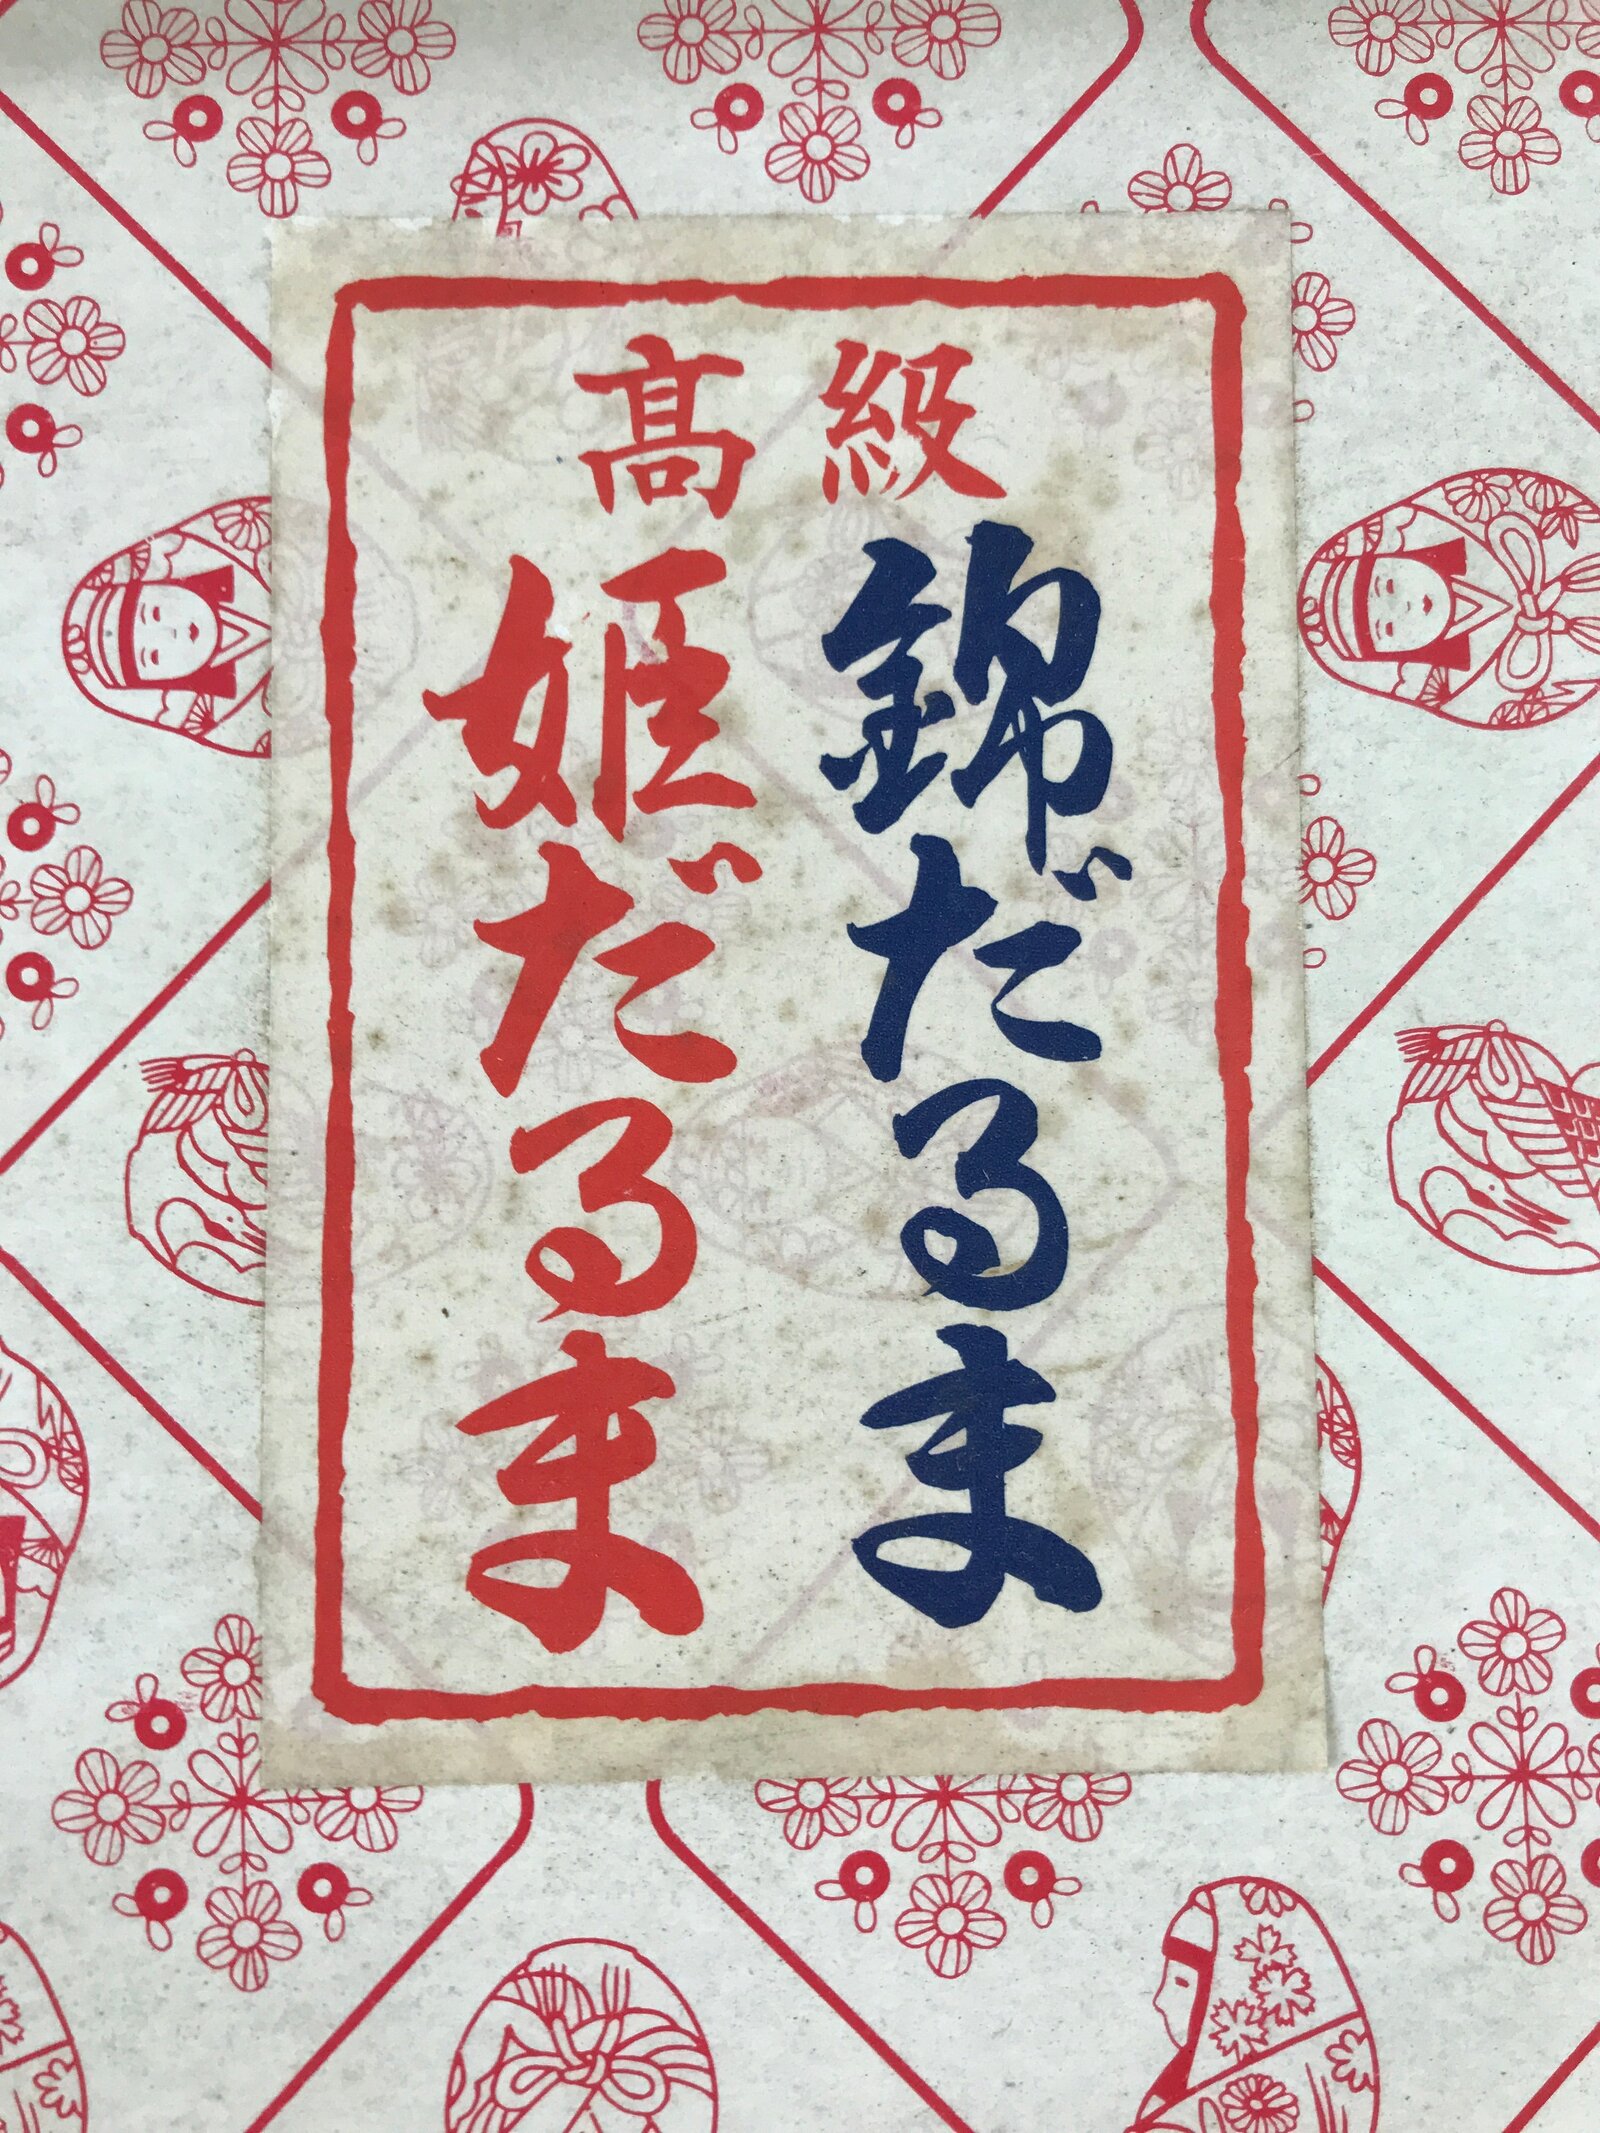 高級
錦だるま
姫だるま